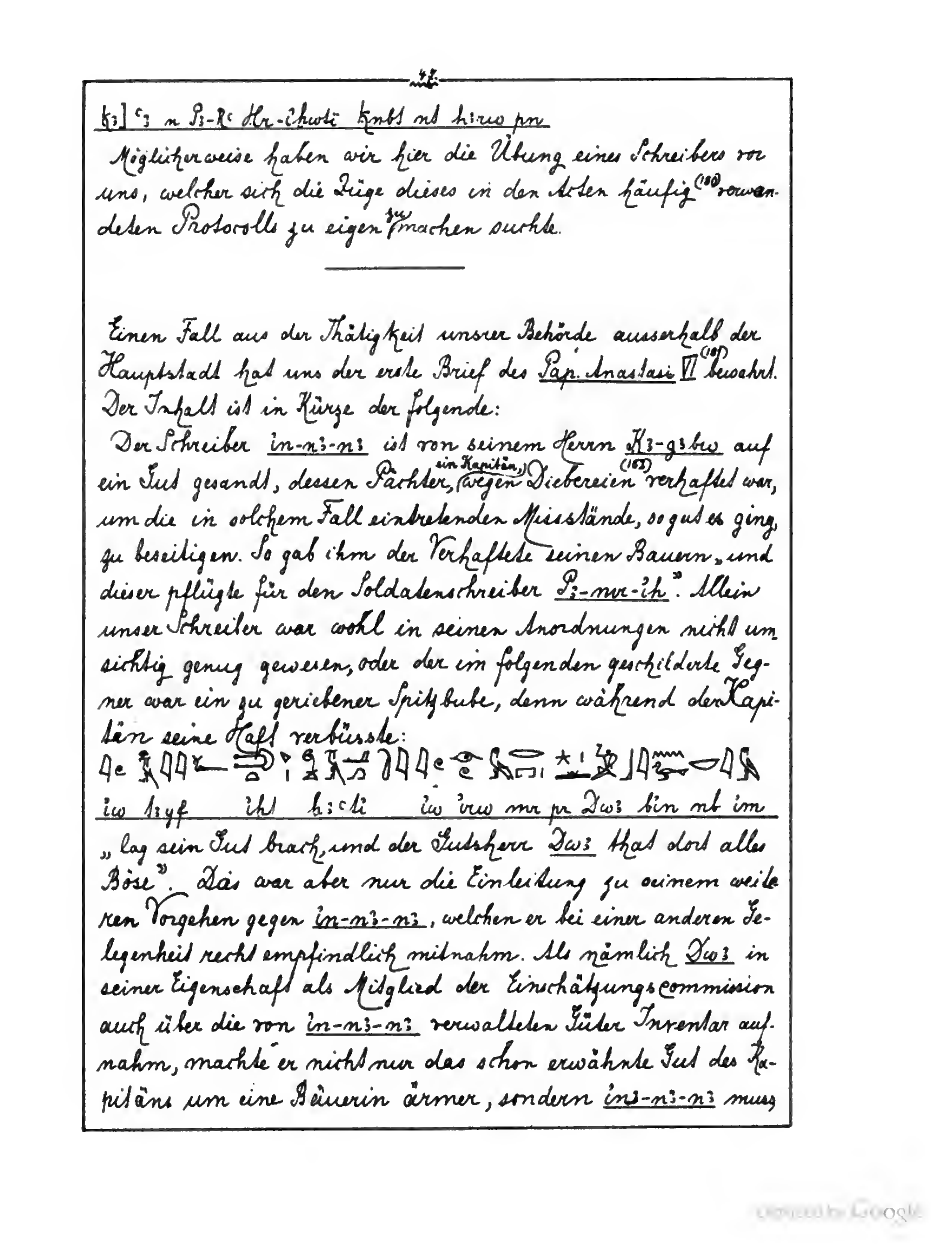 47.
k3] ꜥ3 n P3-Rꜥ Ḥr-iḫwti knbt nt hrw pn
Möglicherweise haben wir hier die Übung eines Schreibers vor
uns, welcher sich die Züge dieses in den Acten häufig (180) verwen-
deten Protocolls zu eigen zu machen suchte.
Einen Fall aus der Thätigkeit unsrer Behörde ausserhalb der
Hauptstadt hat uns der erste Brief des Pap. Anastasi VI (181) bewahrt.
Der Inhalt ist in Kürze der folgende:
Der Schreiber in-n3-n3 ist von seinem Herrn K3-g3bw auf
ein Gut gesandt, dessen Pächter, ein Kapitän, wegen Diebereien (182) verhaftet war,
um die in solchem Fall eintretenden Missstände, so gut es ging,
zu beseitigen. So gab ihm der Verhaftete seinen Bauern „und
dieser pflügte für den Soldatenschreiber P3-mr-ih“. Allein
unser Schreiber war wohl in seinen Anordnungen nicht um
sichtig genug gewesen, oder der im folgenden geschilderte Geg-
ner war ein zu geriebener Spitzbube, denn während der Kapi-
tän seine Haft verbüsste:
iw t3yf iht h3cti iw irw mr pr Dw3 bin nb im
„lag sein Gut brach, und der Gutsherr Dw3 that dort alles
Böse“. Das war aber nur die Einleitung zu seinem weite
ren Vorgehen gegen in-n3-n3, welchen er bei einer anderen Ge-
legenheit recht empfindlich mitnahm. Als nämlich Dw3 in
seiner Eigenschaft als Mitglied der Einschätzungscommission
auch über die von in-n3-n3 verwalteten Güter Inventar auf-
nahm, machte er nicht nur das schon erwähnte Gut des Ka-
pitäns um eine Bäuerin ärmer, sondern in3-n3-n3 muss
Digitized by Google